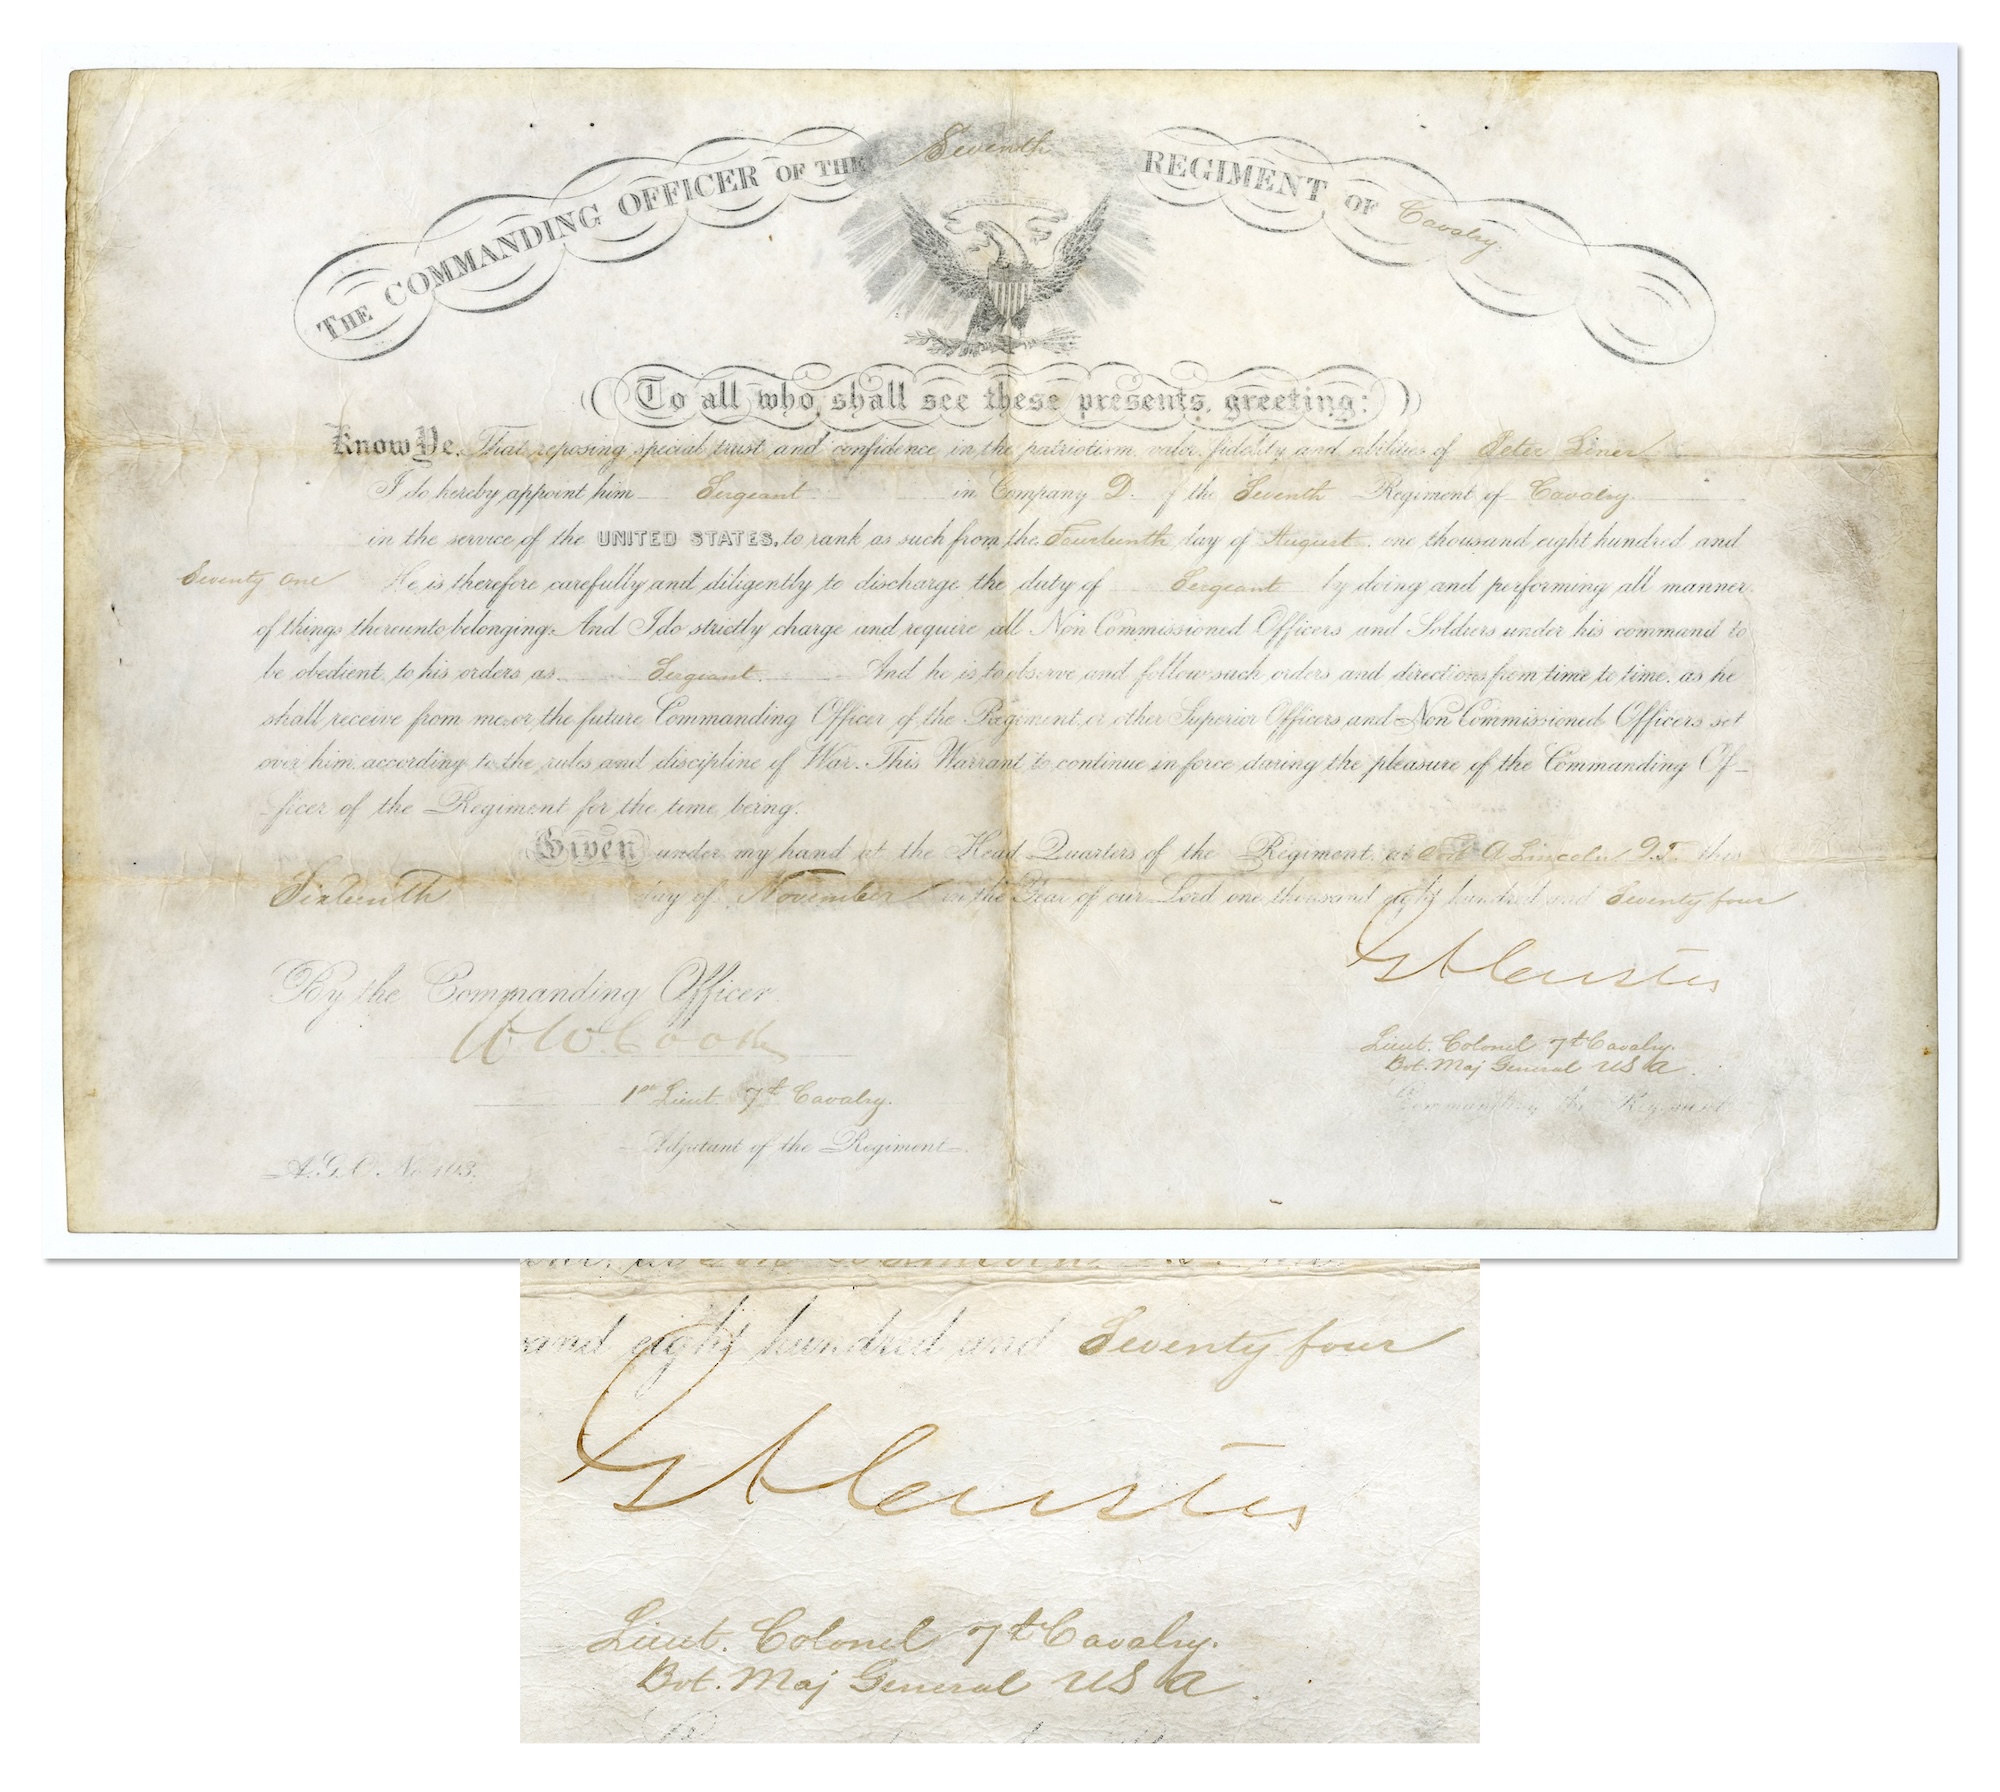 THE COMMANDING OFFICER OF THE Seventh REGIMENT OF Cavalry.
To all who shall see these presents, greeting:
Know Ye, That reposing special trust and confidence in the patriotism, valor, fidelity and abilities of Peter Liner
I do hereby appoint him Sergeant in Company D. of the Seventh Regiment of Cavalry
in the service of the UNITED STATES, to rank as such from the Fourteenth day of August one thousand eight hundred and
Seventy one He is therefore carefully and diligently to discharge the duty of Sergeant by doing and performing all manner
of things thereunto belonging. And I do strictly charge and require all Non Commissioned Officers and Soldiers under his command to
be obedient to his orders as Sergeant. And he is to observe and follow such orders and directions from time to time, as he
shall receive from me, or the future Commanding Officer of the Regiment, or other Superior Officers and Non Commissioned Officers set
over him, according to the rules and discipline of War. This Warrant to continue in force during the pleasure of the Commanding Of-
ficer of the Regiment for the time being.
Given under my hand at the Head Quarters of the Regiment, at Fort A Lincoln D.T. this
Sixteenth day of November in the Year of our Lord one thousand eight hundred and Seventy four
GACuster
By the Commanding Officer
W W Cooke
Lieut. Colonel 7th Cavalry.
Bvt. Maj General USA.
Commanding the Regiment
1st Lieut. 7th Cavalry.
Adjutant of the Regiment.
A.G.O. No. 103.
and eight hundred and Seventy four
GACuster
Lieut. Colonel 7th Cavalry.
Bvt. Maj General USA.